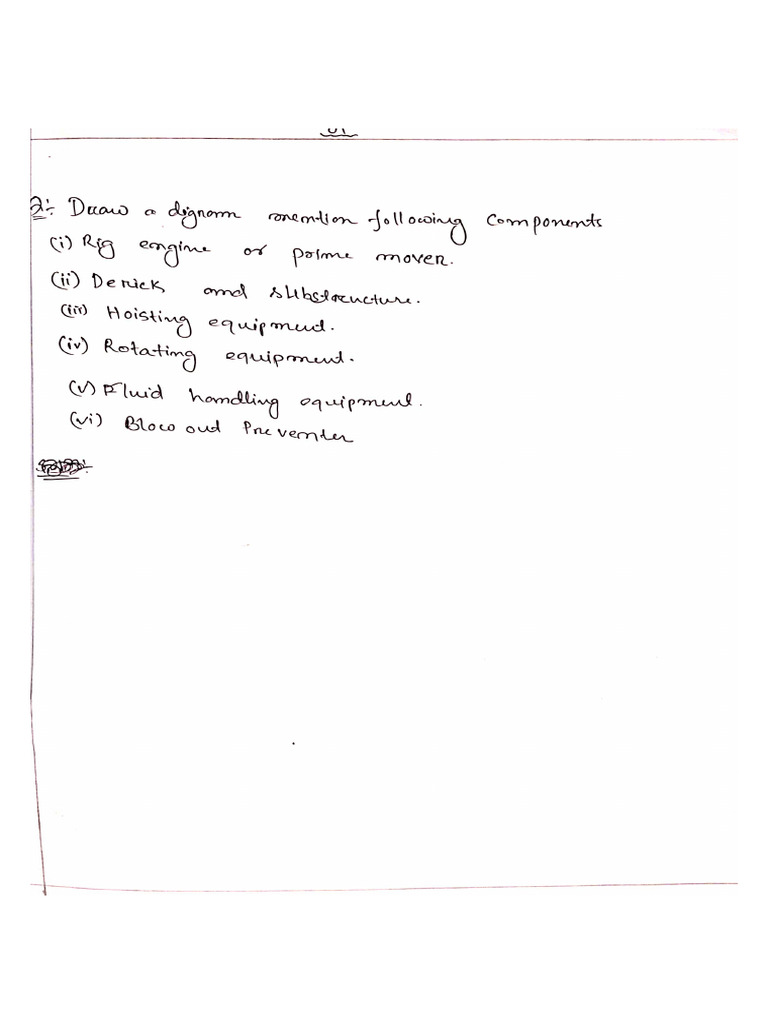 01
2:- Draw a dignam mention following components
(i) Rig engine or prime mover.
(ii) Derick and substructure.
(iii) Hoisting equipment.
(iv) Rotating equipment.
(v) Fluid handling equipment.
(vi) Blow out Preventer